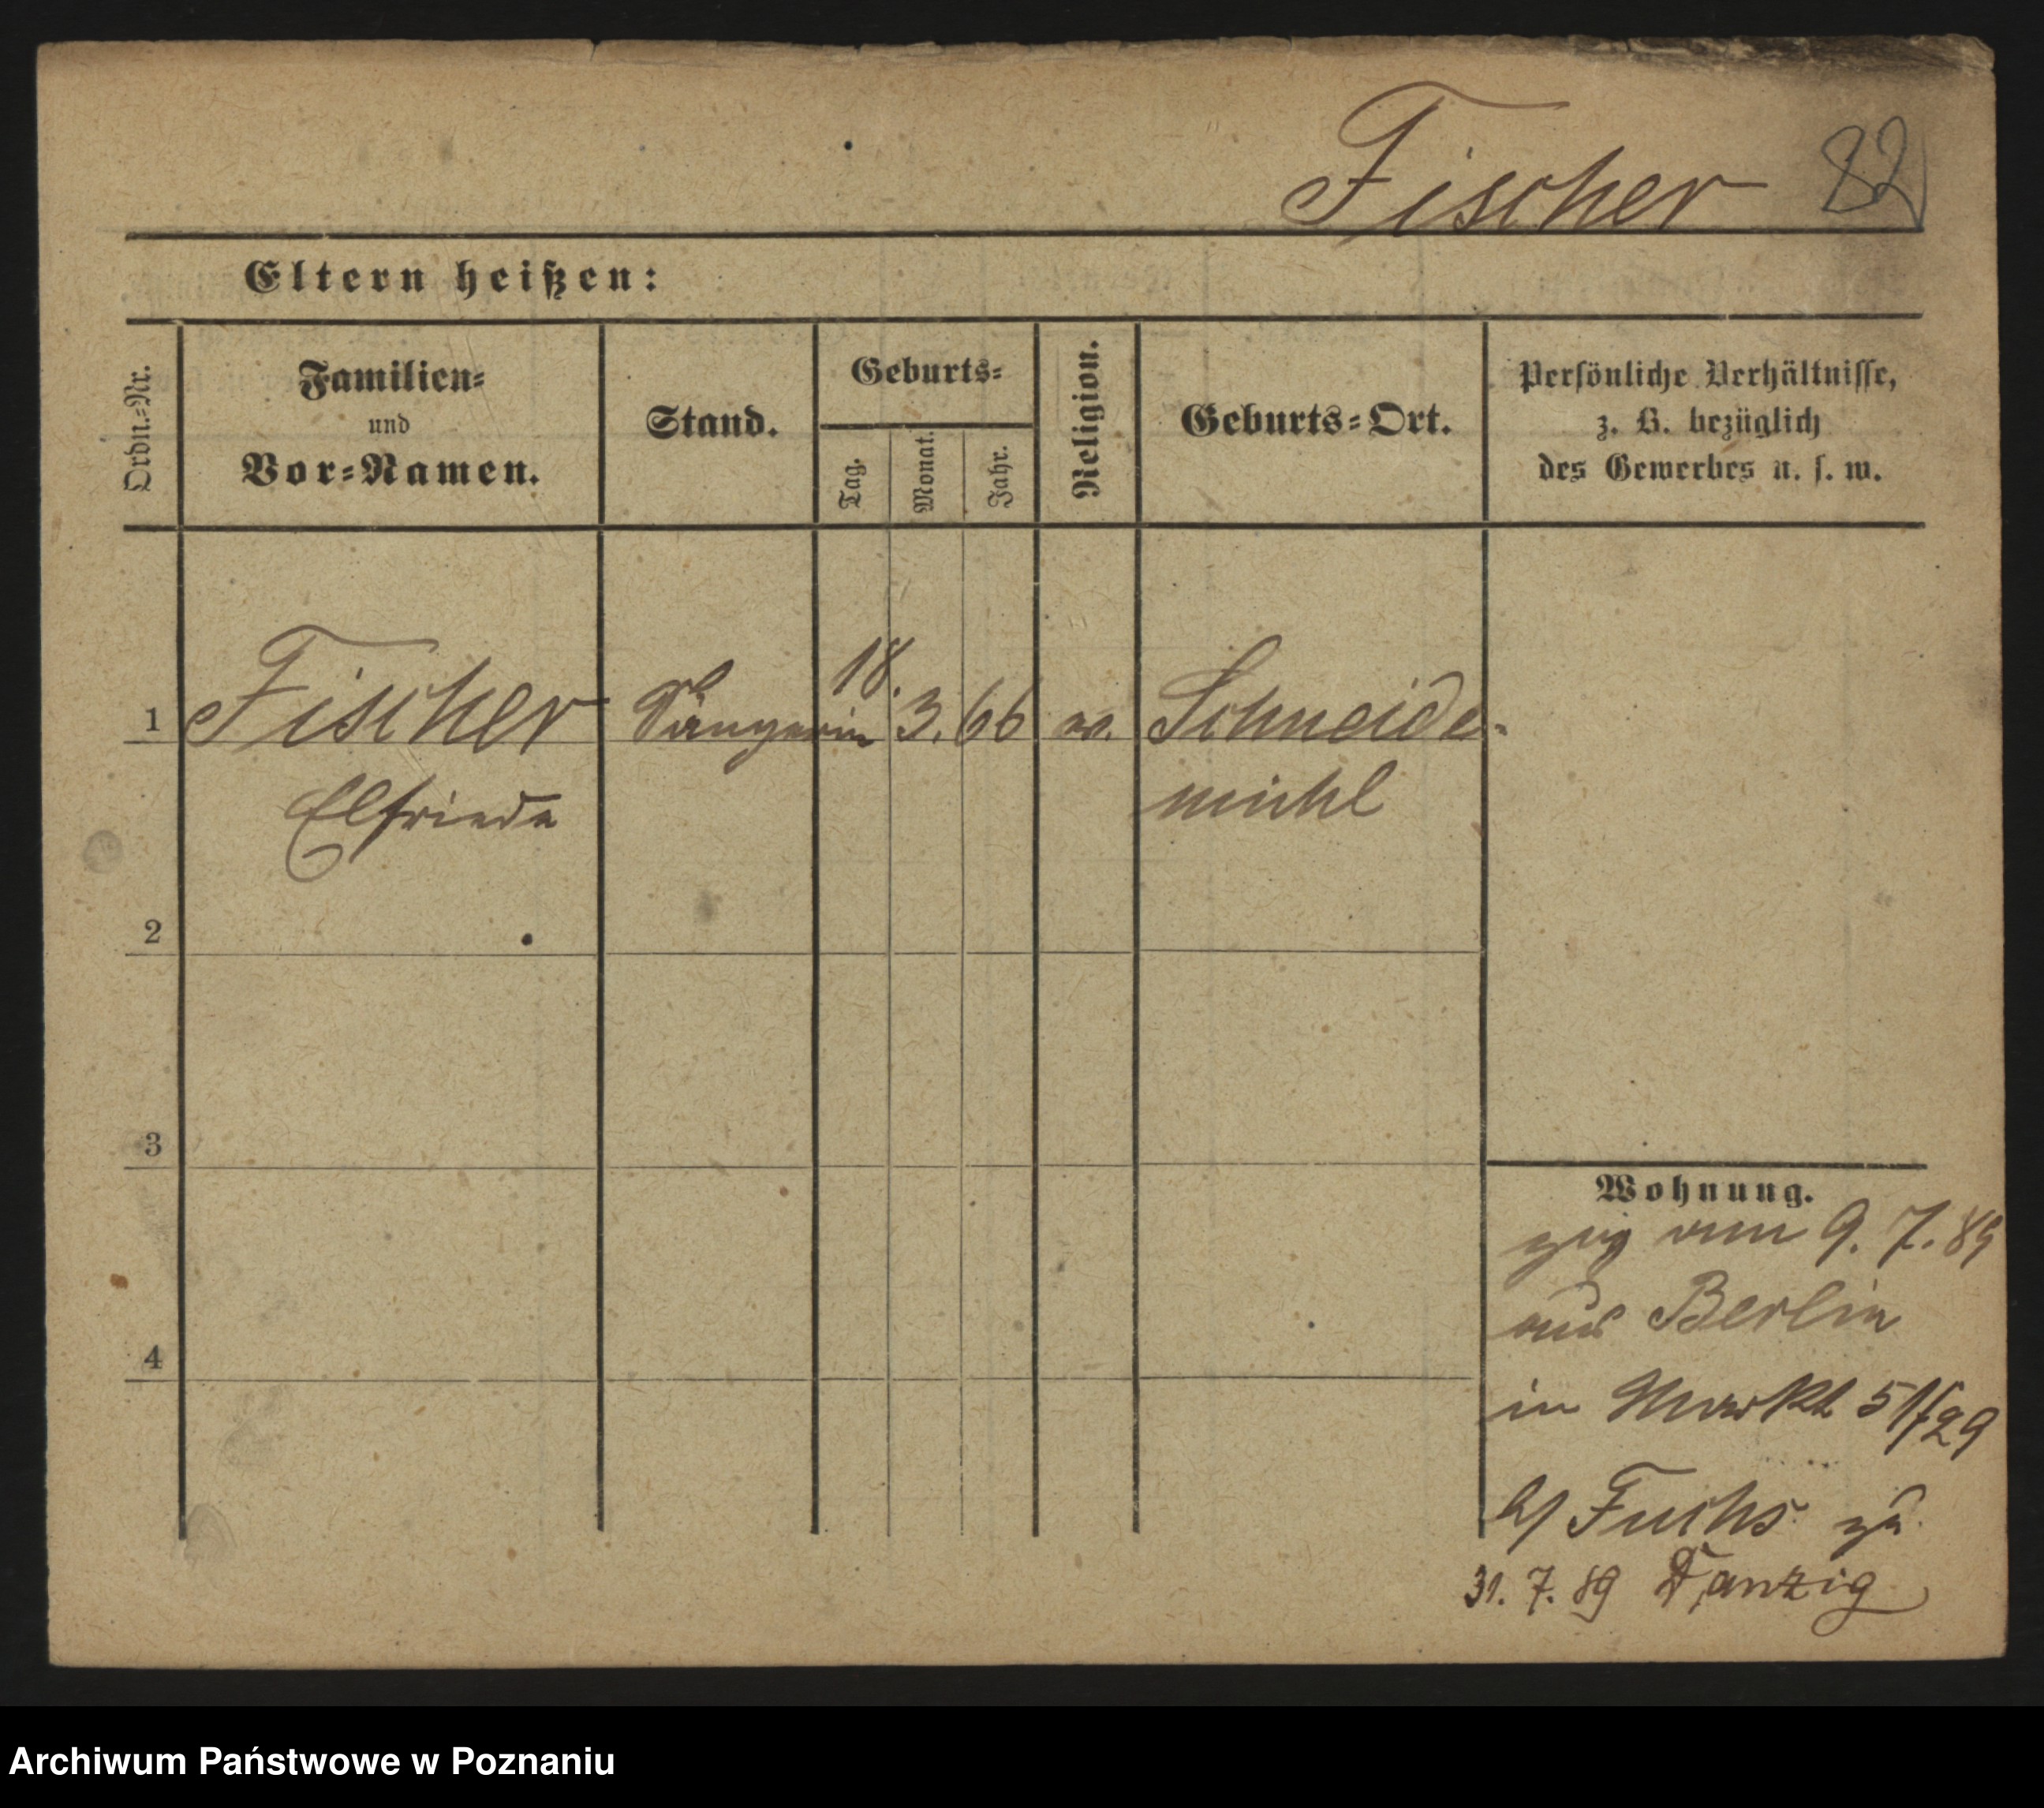 Fischer 82
Eltern heißen:
Ordn.-Nr.
Familien-
und
Vor-Namen.
Stand.
Geburts-
Tag.
Monat.
Jahr.
Religion.
Geburts-Ort.
Persönliche Verhältnisse,
z. B. bezüglich
des Gewerbes u. s. w.
1 Fischer Sängerin 18. 3. 66 Schneide-
Elfriede mühl
2
3
4
Wohnung.
zug am 9. 7. 89
aus Berlin
in Markt 51/29
b/ Fuchs
31. 7. 89 Danzig
Archiwum Państwowe w Poznaniu